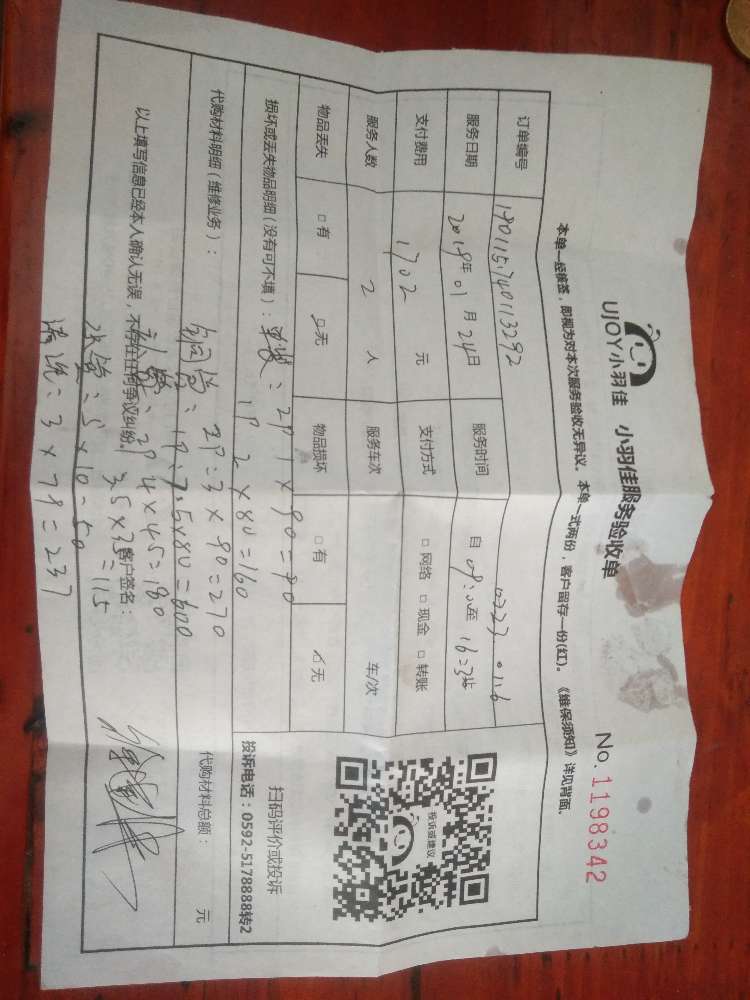 UJOY小羽佳 小羽佳服务验收单
No. 1198342
本单一经核签,即视为对本次服务验收无异议。本单一式两份,客户留存一份(红)。《维保须知》详见背面。
订单编号 180115740113292
服务日期 2018年01月24日 服务时间 自 09:
支付费用 1702 元 支付方式 □网络 □现金 □转账
服务人数 2 人 服务车次 车/次
物品丢失 □有 ☑无 物品损坏 □有 ☑无
投诉或建议
扫码评价或投诉
投诉电话:0592-5178888转2
损坏或丢失物品明细(没有可不填):
2P 1×90=90
1P 2×80=160
代购材料明细(维修业务):
铜管:2P:3×90=270
1P:7.5×80=600
代购材料总额: 元
以上填写信息已经本人确认无误,不存在任何争议纠纷。
客户签名:
2P 4×45=180
3.5×35=115
5×10=50
清洗:3×79=237